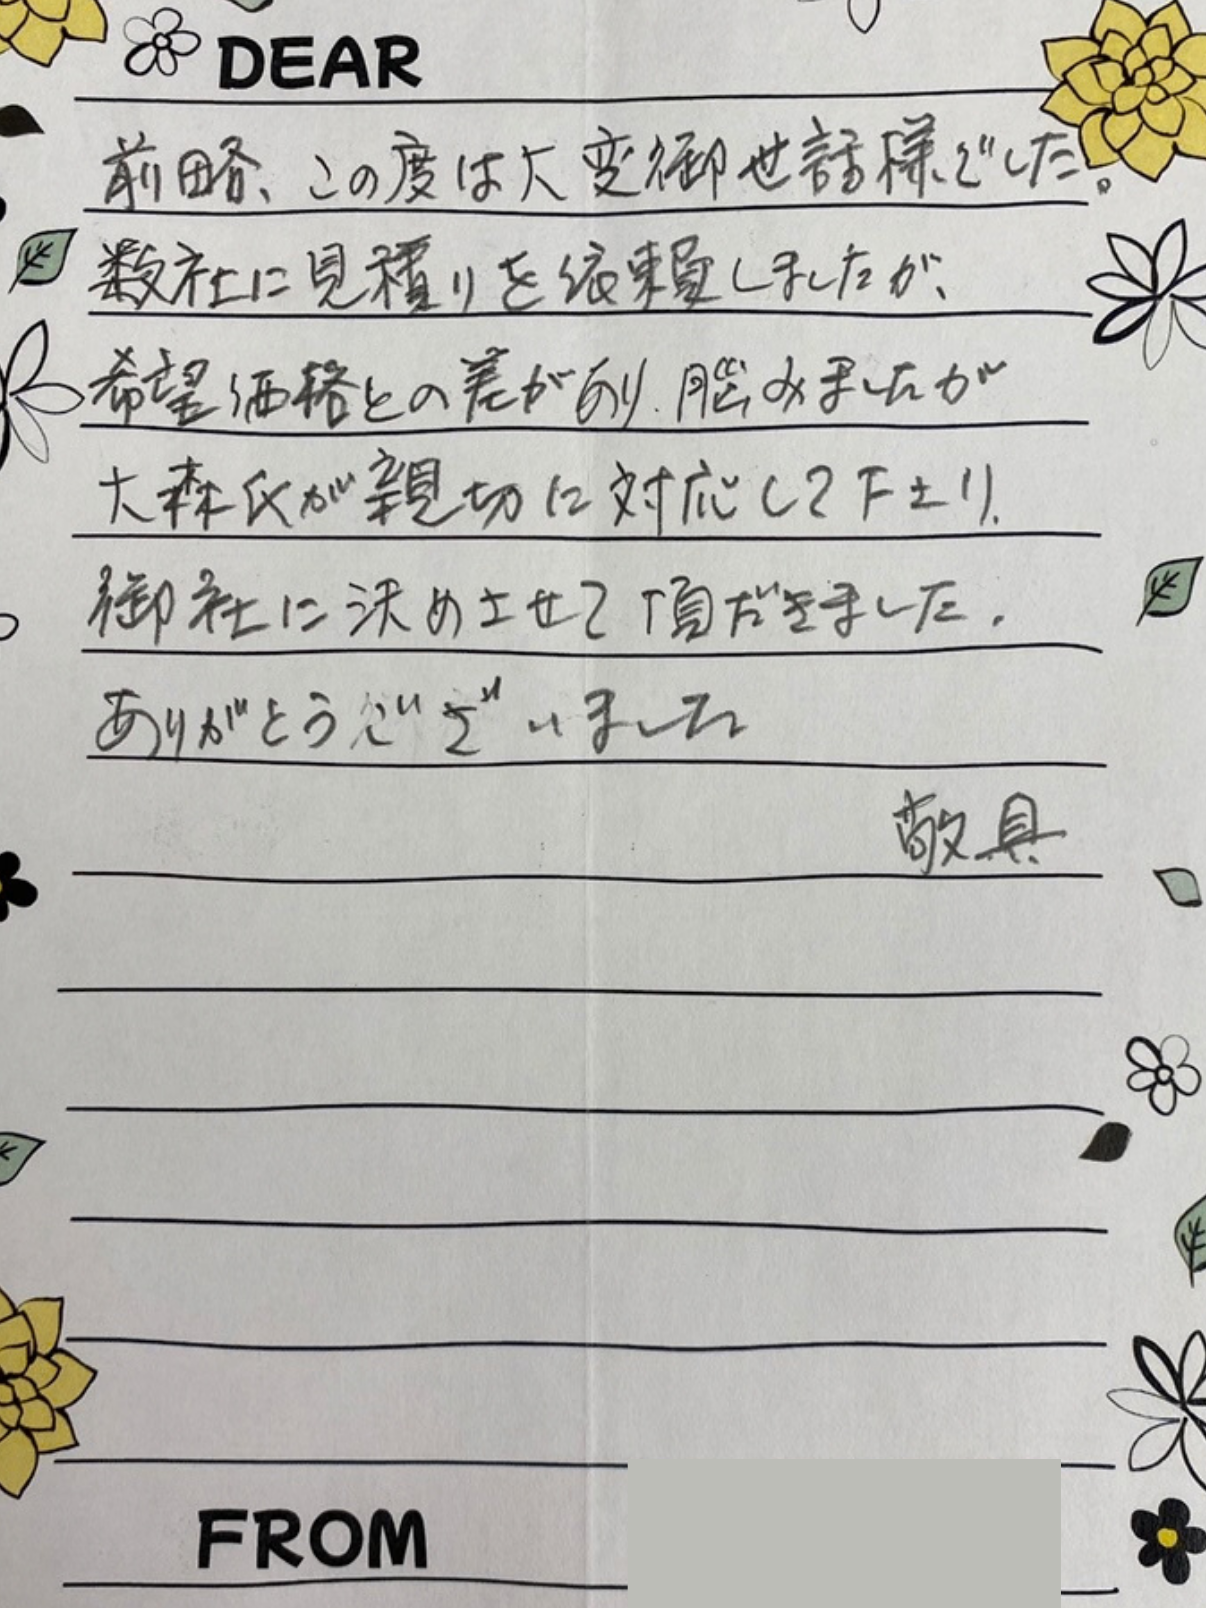 DEAR
前略、この度は大変御世話様でした。
数社に見積りを依頼しましたが、
希望価格との差があり、脳みましたが
大森氏が親切に対応して下さり、
御社に決めさせて頂だきました。
ありがとうございました
敬具
FROM